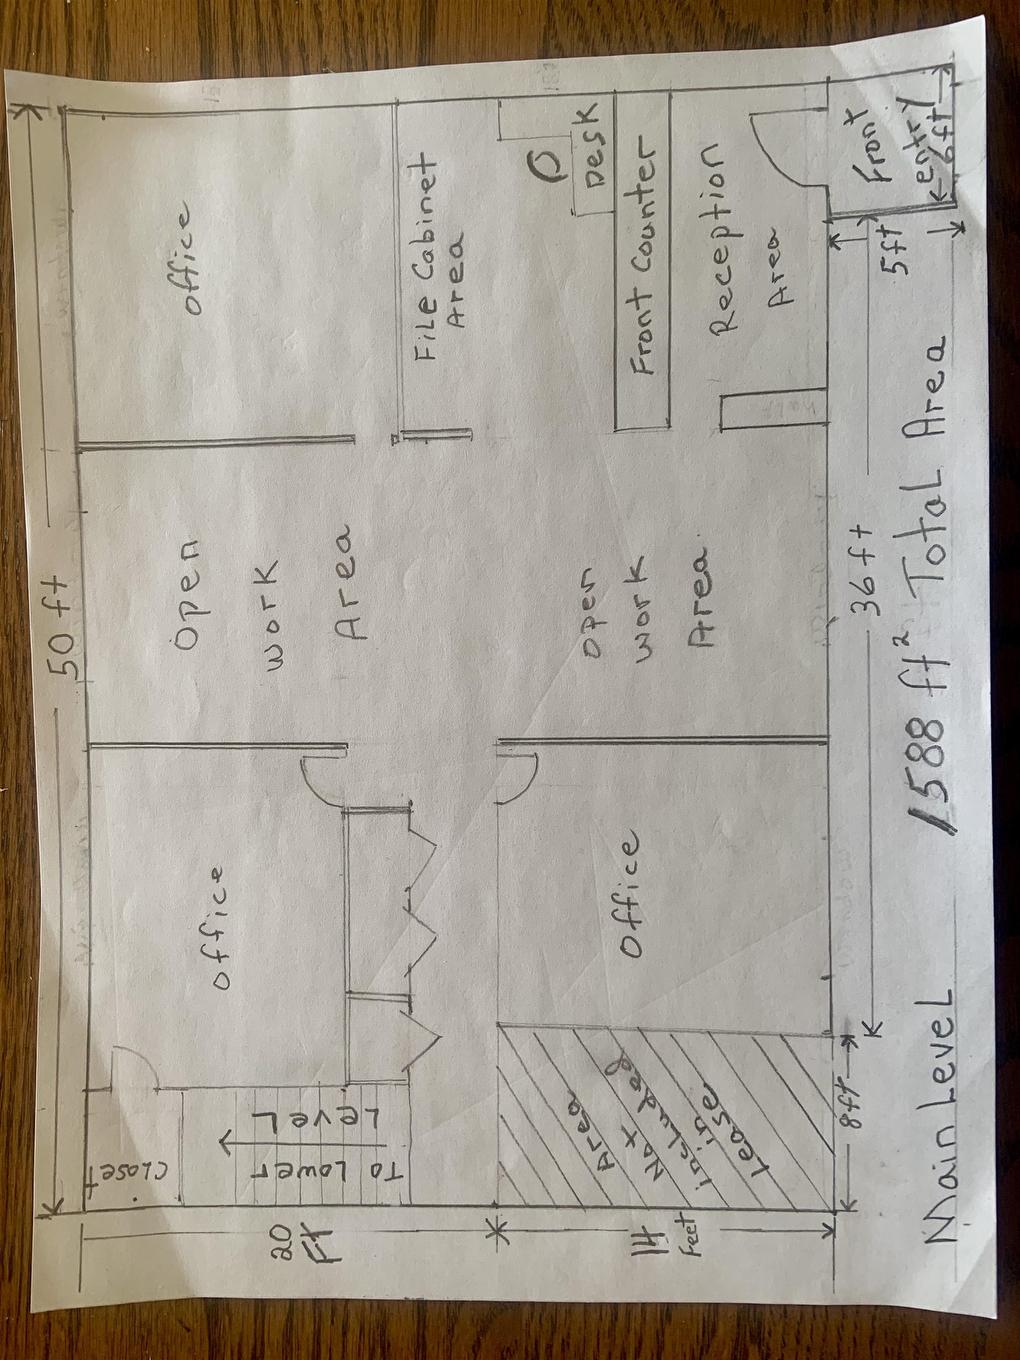 50 ft
Office
File Cabinet
Area
Desk
Front Counter
Reception
Area
Front
entry
6ft
5ft
Open
work
Area
open
work
Area
36ft
Office
Office
Closet
To Lower
Level
Area
Not
included
in
Lease
8ft
20
Ft
14
Feet
Main Level 1588 ft² Total Area